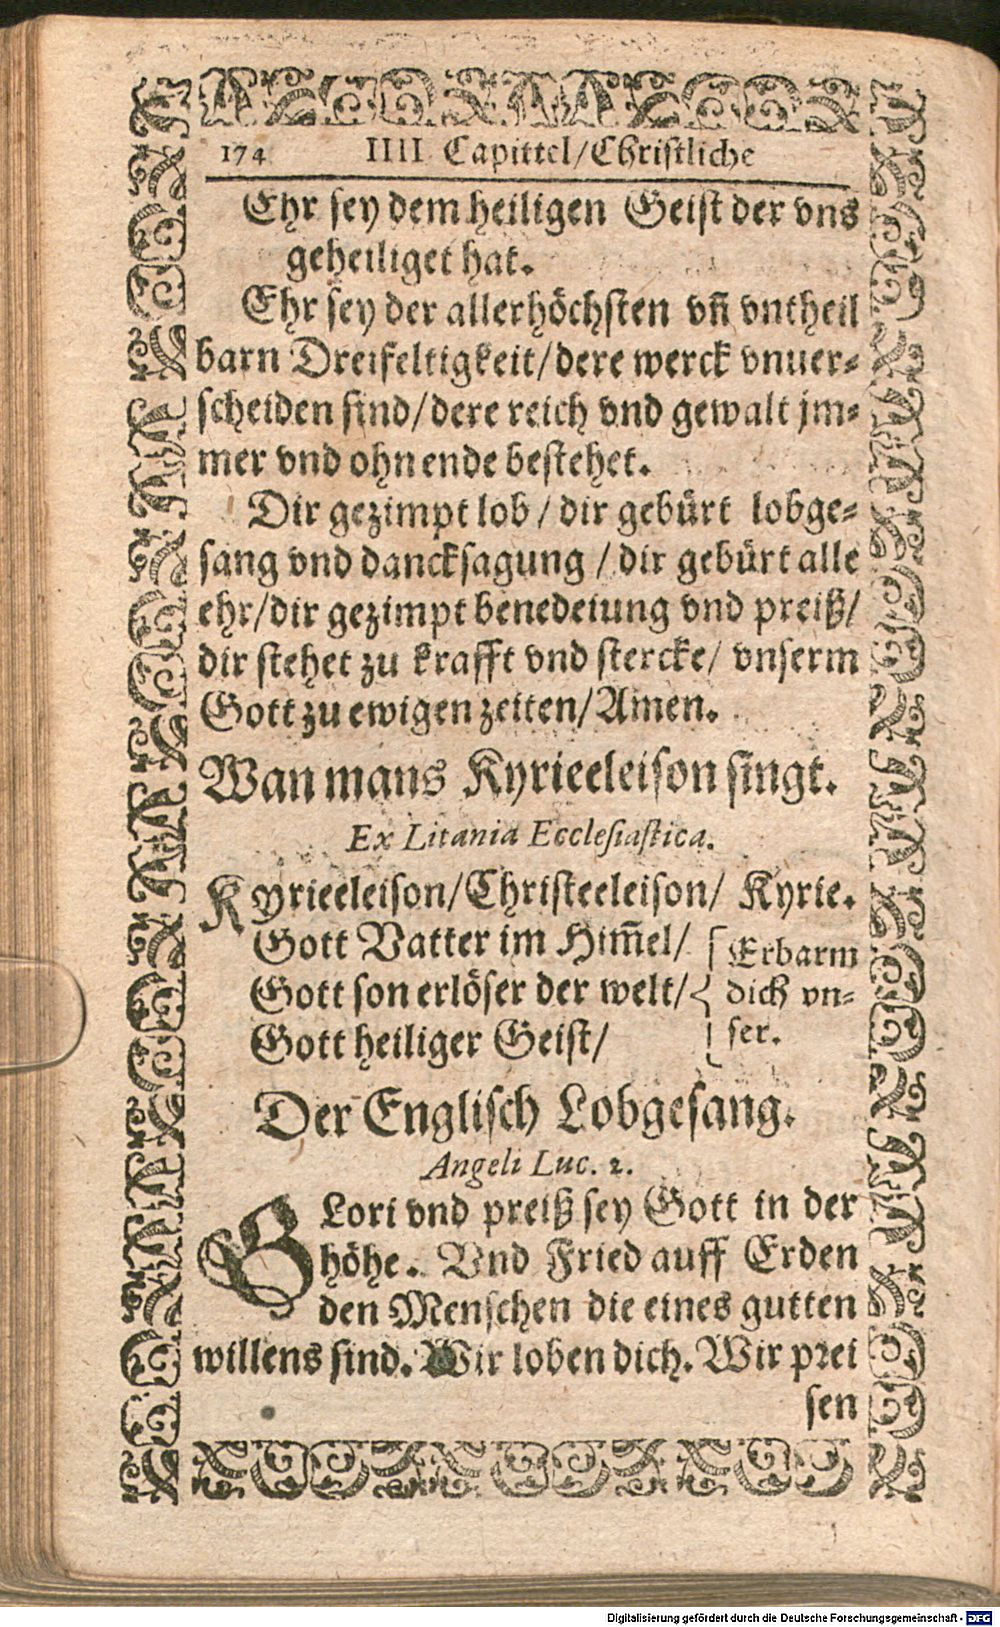 174 IIII Capittel/Christliche
Ehr sey dem heiligen Geist der vns
geheiliget hat.
Ehr sey der allerhöchsten vñ vntheil
barn Dreifeltigkeit/dere werck vnuer-
scheiden sind/dere reich vnd gewalt jm-
mer vnd ohn ende bestehet.
Dir gezimpt lob/dir gebürt lobge-
sang vnd dancksagung/dir gebürt alle
ehr/dir gezimpt benedeiung vnd preiß/
dir stehet zu krafft vnd stercke/vnserm
Gott zu ewigen zeiten/Amen.
Wan mans Kyrieeleison singt.
Ex Litania Ecclesiastica.
Kyrieeleison/Christeeleison/Kyrie.
Gott Vatter im Him̃el/
Gott son erlöser der welt/
Gott heiliger Geist/
Erbarm
dich vn-
ser.
Der Englisch Lobgesang.
Angeli Luc. 2.
GLori vnd preiß sey Gott in der
höhe. Vnd Fried auff Erden
den Menschen die eines gutten
willens sind. Wir loben dich. Wir prei
sen
Digitalisierung gefördert durch die Deutsche Forschungsgemeinschaft - DFG